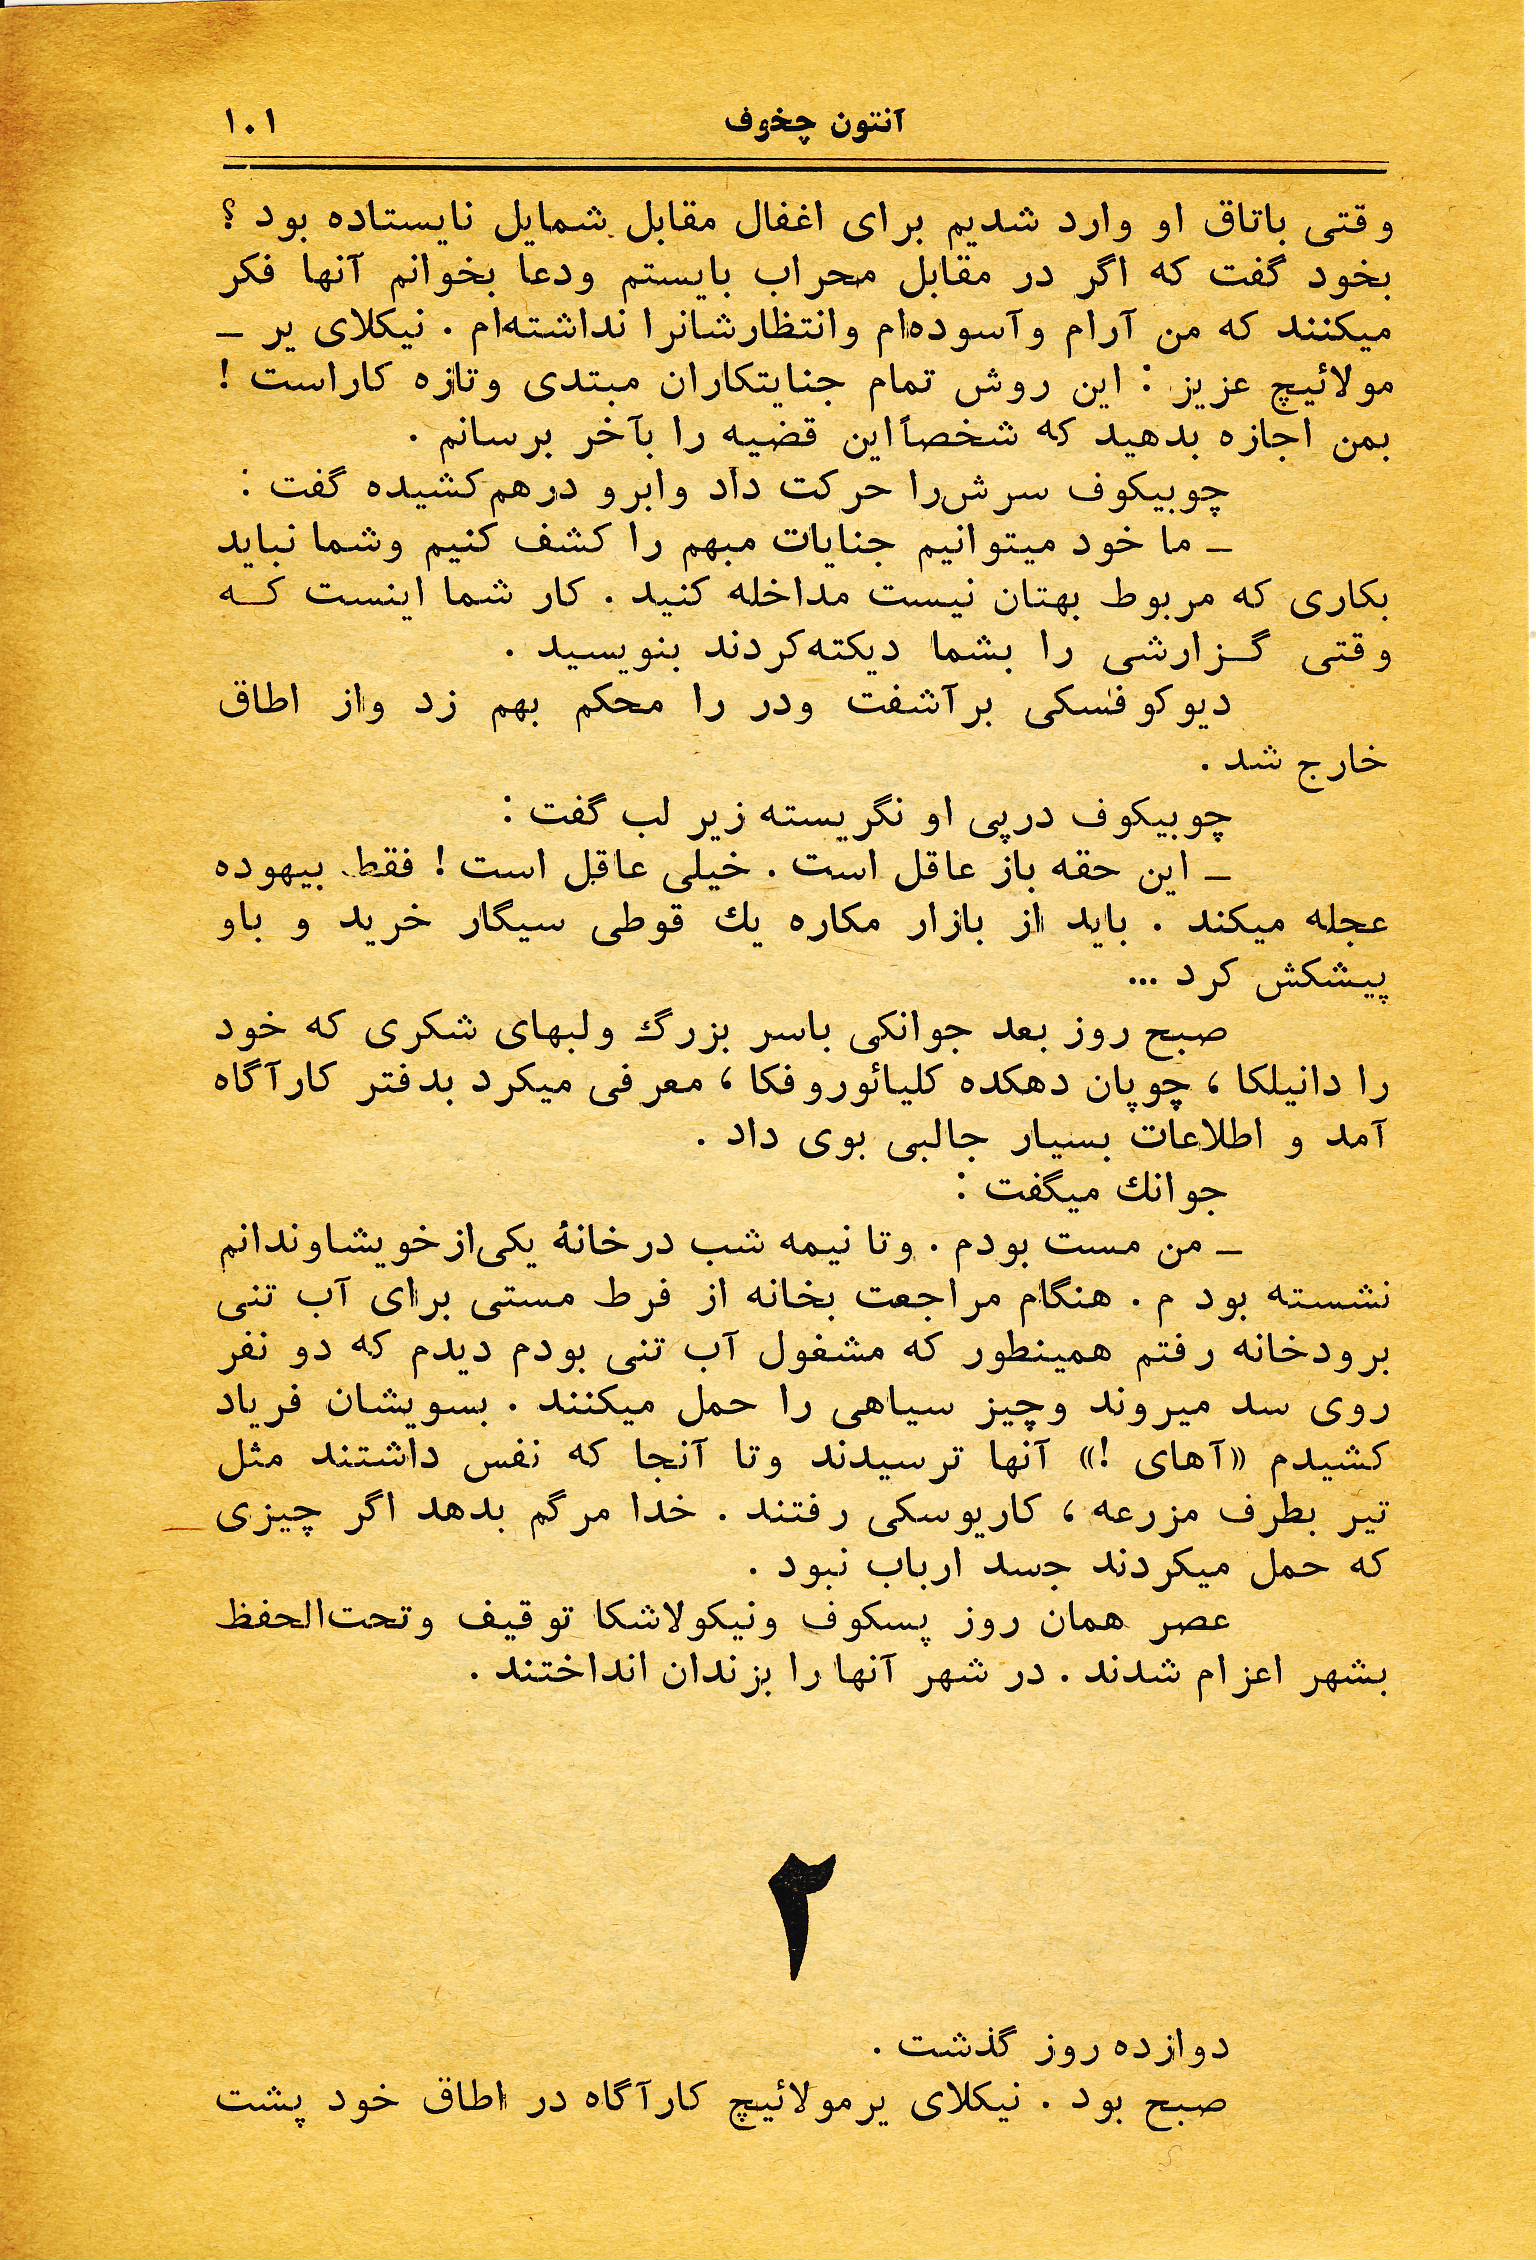 آنتون چخوف ۱۰۱
وقتی باتاق او وارد شدیم برای اغفال مقابل شمایل نایستاده بود ؟
بخود گفت که اگر در مقابل محراب بایستم ودعا بخوانم آنها فکر
میکنند که من آرام وآسوده‌ام وانتظارشانرا نداشته‌ام . نیکلای یر ـ
مولائیچ عزیز : این روش تمام جنایتکاران مبتدی وتازه کاراست !
بمن اجازه بدهید که شخصاً این قضیه را بآخر برسانم .
چوبیکوف سرش‌را حرکت داد وابرو درهم کشیده گفت :
ـ ما خود میتوانیم جنایات مبهم را کشف کنیم وشما نباید
بکاری که مربوط بهتان نیست مداخله کنید . کار شما اینست کـه
وقتی گـزارشی را بشما دیکته‌کردند بنویسید .
دیوکوفسکی برآشفت ودر را محکم بهم زد واز اطاق
خارج شد .
چوبیکوف درپی او نگریسته زیر لب گفت :
ـ این حقه باز عاقل است . خیلی عاقل است ! فقط بیهوده
عجله میکند . باید از بازار مکاره یك قوطی سیگار خرید و باو
پیشکش کرد ...
صبح روز بعد جوانکی باسر بزرگ ولبهای شکری که خود
را دانیلکا ، چوپان دهکده کلیائوروفکا ، معرفی میکرد بدفتر کارآگاه
آمد و اطلاعات بسیار جالبی بوی داد .
جوانك میگفت :
ـ من مست بودم . وتا نیمه شب درخانهٔ یکی‌از خویشاوندانم
نشسته بود م . هنگام مراجعت بخانه از فرط مستی برای آب تنی
برودخانه رفتم همینطور که مشغول آب تنی بودم دیدم که دو نفر
روی سد میروند وچیز سیاهی را حمل میکنند . بسویشان فریاد
کشیدم «آهای !» آنها ترسیدند وتا آنجا که نفس داشتند مثل
تیر بطرف مزرعه ، کاریوسکی رفتند . خدا مرگم بدهد اگر چیزی
که حمل میکردند جسد ارباب نبود .
عصر همان روز پسکوف ونیکولاشکا توقیف وتحت‌الحفظ
بشهر اعزام شدند . در شهر آنها را بزندان انداختند .
۲
دوازده روز گذشت .
صبح بود . نیکلای یرمولائیچ کارآگاه در اطاق خود پشت